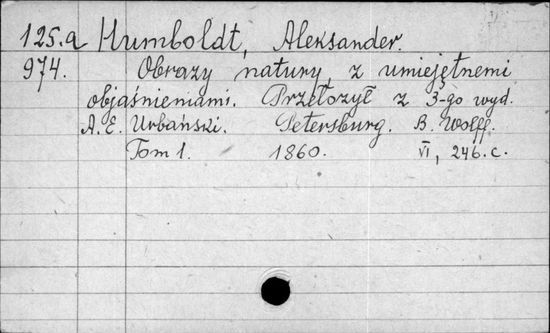 125.a Humboldt, Aleksander.
974. Obrazy natury, z umiejętnemi
objaśnieniami. Przełozył z 3-go wyd.
A. E. Urbański. Petersburg. B. Wolff.
Tom 1. 1860. VI, 246.c.